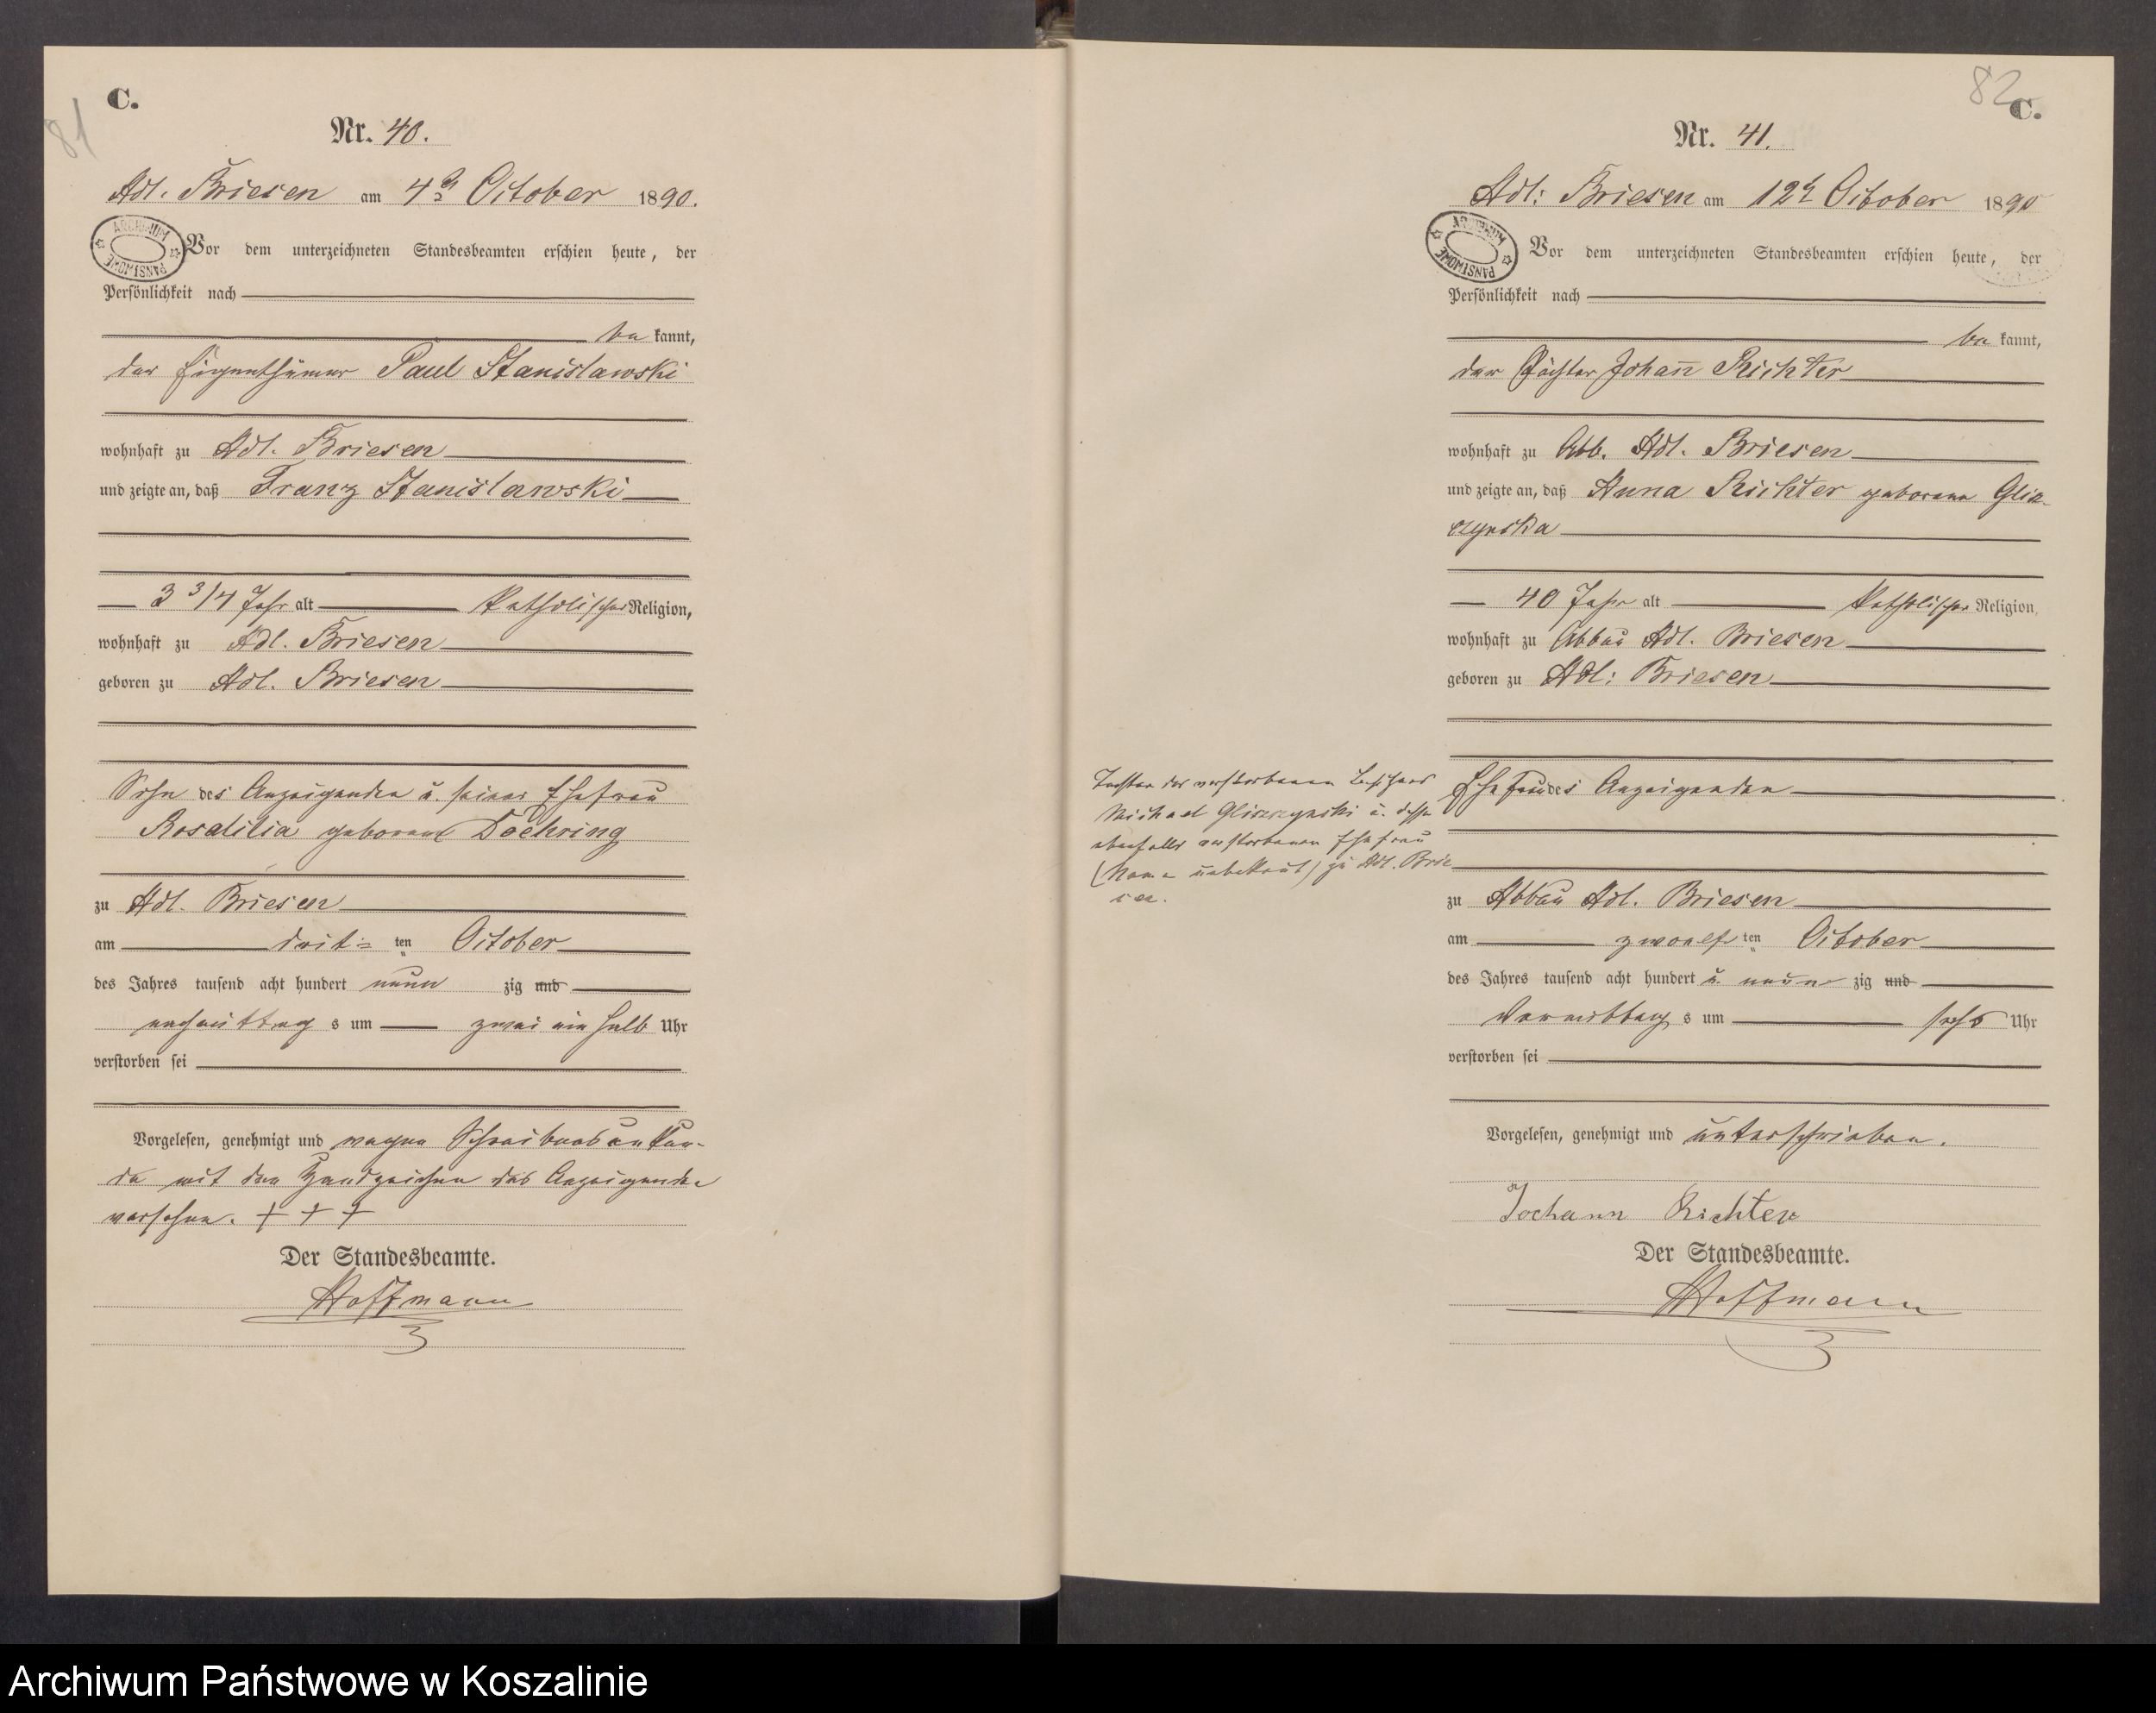 81
C.
Nr. 40.
Adl. Briesen am 4ten October 1890.
ARCHIWUM PAŃSTWOWE
Vor dem unterzeichneten Standesbeamten erschien heute, der
Persönlichkeit nach
be kannt,
der Eigenthümer Paul Stanislawski
wohnhaft zu Adl. Briesen
und zeigte an, daß Franz Stanislawski
3 3/4 Jahr alt katholischer Religion,
wohnhaft zu Adl. Briesen
geboren zu Adl. Briesen
Sohn des Anzeigenden u. seiner Ehefrau
Rosalilia geborene Doehring
zu Adl. Briesen
am drit= ten October
des Jahres tausend acht hundert neun zig und
nachmittag s um zwei ein halb Uhr
verstorben sei
Vorgelesen, genehmigt und wegen Schreibensunkun-
de mit den Handzeichen des Anzeigenden
versehen. + + +
Der Standesbeamte.
Hoffmann
82
C.
Nr. 41.
Adl: Briesen am 12t October 1890
ARCHIWUM PAŃSTWOWE
Vor dem unterzeichneten Standesbeamten erschien heute, der
Persönlichkeit nach
be kannt,
der Pächter Johann Richter
wohnhaft zu Abb. Adl. Briesen
und zeigte an, daß Anna Richter geborene Glis-
czynska
40 Jahr alt katholischer Religion,
wohnhaft zu Abbau Adl. Briesen
geboren zu Adl: Briesen
Tochter des verstorbenen Besitzers
Michael Gliszczynski u. dessen
ebenfalls verstorbenen Ehefrau
(Name unbekannt) zu Adl. Brie
sen.
Ehefrau des Anzeigenden
zu Abbau Adl. Briesen
am zwoelf ten October
des Jahres tausend acht hundert u. neun zig und
Vormittag s um sechs Uhr
verstorben sei
Vorgelesen, genehmigt und unterschrieben.
Johann Richter
Der Standesbeamte.
Hoffmann
Archiwum Państwowe w Koszalinie